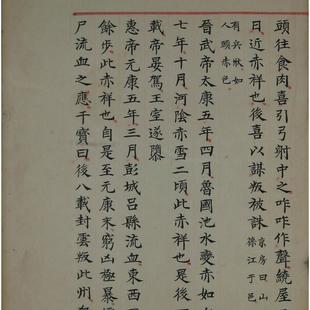 頭往食肉喜引弓射中之咋咋作聲繞屋
日近赤祥也後喜以謀叛被誅京房曰山
孫江于邑
有兵狀如
人頭赤色
晉武帝太康五年四月魯國池水變赤如
七年十月河陰赤雪二頃此赤祥也是後
載帝晏駕王室遂隳
惠帝元康五年三月彭城呂縣流血東西
餘步此赤祥也自是至元康末窮凶極暴
尸流血之應干寶曰後八載封雲叛此州